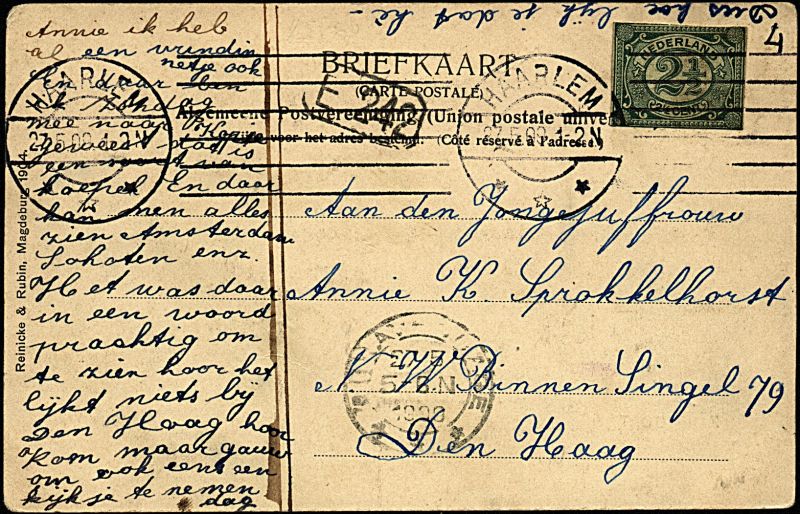 Annie ik heb
al een vrindin
netje ook
En daar ben
ik Zondag
mee naar
geweest dat is
een soort van
koepel En daar
kan men alles
zien Amsterdam
Schoten enz.
Het was daar
in een woord
prachtig om
te zien hoor het
lijkt niets by
Den Haag hoor
Kom maar gauw
om ook eens een
kijkje te nemen
dag
Dus hoe lijk je dat hè-
4
BRIEFKAART
(CARTE POSTALE)
Algemeene Postvereeniging (Union postale univers
Zijde voor het adres bestemd. (Côté réservé à l'adresse.)
NEDERLAND
2½
CENT
HAARLEM
27.5.08.1-2N
HAARLEM
27.5.08.1-2N
E 242
Aan den Jongejuffrouw
Annie K. Sprokkelhorst
N W Binnen Singel 79
Den Haag
5-6.N
1908
Reinicke & Rubin, Magdeburg 1904.